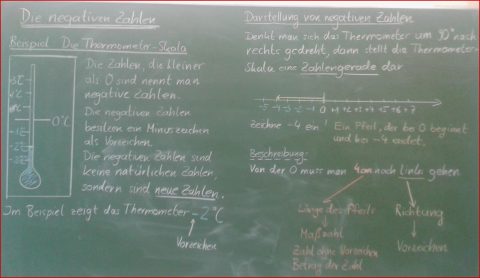 Die negativen Zahlen
Beispiel Die Thermometer-Skala
0°C
Die Zahlen, die kleiner
als 0 sind nennt man
negative Zahlen.
Die negativen Zahlen
besitzen ein Minuszeichen
als Vorzeichen.
Die negativen Zahlen sind
keine natürlichen Zahlen,
sondern sind neue Zahlen.
Im Beispiel zeigt das Thermometer -2°C
Vorzeichen
Darstellung von negativen Zahlen
Denkt man sich das Thermometer um 90° nach
rechts gedreht, dann stellt die Thermometer-
Skala eine Zahlengerade dar
-5 -4 -3 -2 -1 0 +1 +2 +3 +4 +5 +6 +7
Zeichne -4 ein Ein Pfeil, der bei 0 beginnt
und bei -4 endet.
Beschreibung:
Von der 0 muss man 4cm nach links gehen
Länge des Pfeils
Richtung
Maßzahl
Vorzeichen
Zahl ohne Vorzeichen
Betrag der Zahl